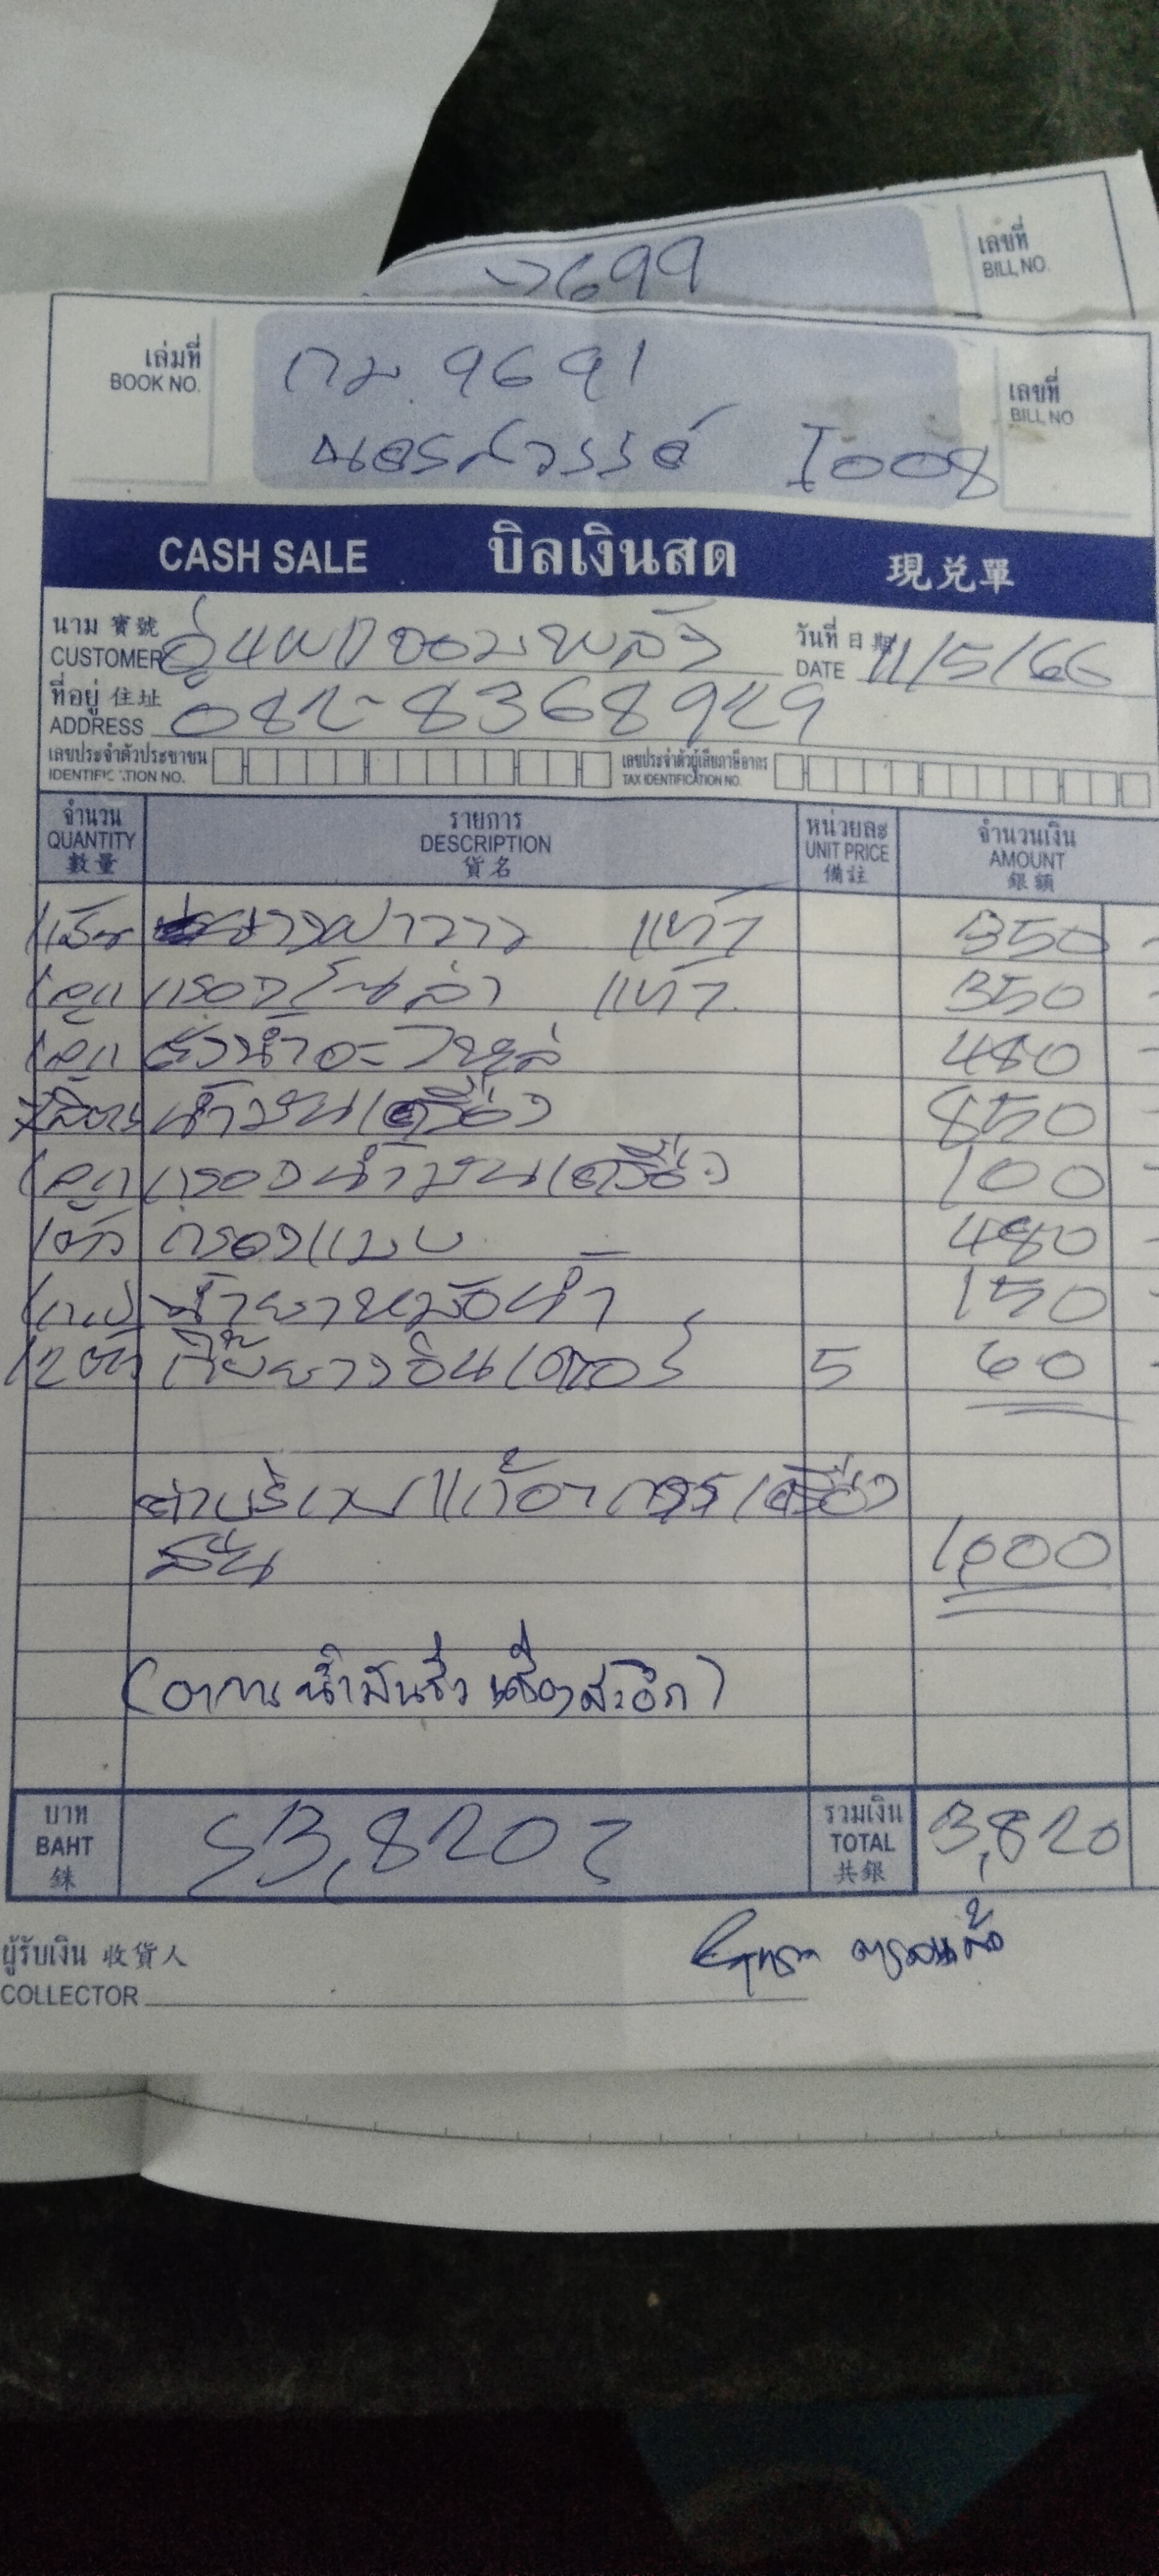 7699
เลขที่
BILL NO.
เล่มที่
BOOK NO.
กม. 9691
นครสวรรค์ I008
เลขที่
BILL NO
CASH SALE บิลเงินสด 現兌單
นาม 寶號
CUSTOMER อู่
วันที่ 日期
DATE 11/5/66
ที่อยู่ 住址
ADDRESS 082-8368929
เลขประจำตัวประชาชน
IDENTIFICATION NO.
เลขประจำตัวผู้เสียภาษีอากร
TAX IDENTIFICATION NO.
จำนวน
QUANTITY
數量
รายการ
DESCRIPTION
貨名
หน่วยละ
UNIT PRICE
備註
จำนวนเงิน
AMOUNT
銀額
1เส้น ยางฝาวาว แท้ว 350 -
1ลูก กรองโซล่า แท้ว 350 -
1ลูก 480 -
ลิตร น้ำมันเครื่อง 850 -
1ลูก กรองน้ำมันเครื่อง 100 -
1ตัว กรองแมบ 480 -
1แกน น้ำยาหม้อน้ำ 150 -
12ตัว กิ๊บยางอินเตอร์ 5 60 -
ค่าบริการแก้อาการเครื่อง
สั่น 1,000
(อาการ น้ำมันรั่ว เครื่องสะอึก)
บาท
BAHT
銖
3,820
รวมเงิน
TOTAL
共銀
3,820
ผู้รับเงิน 收貨人
COLLECTOR